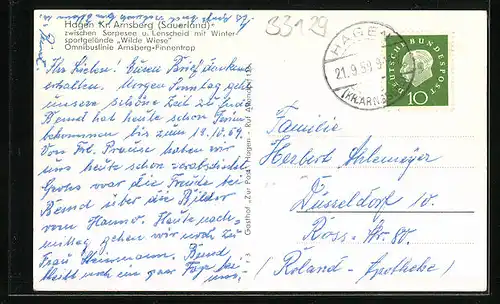 33129
Hagen Kr. Arnsberg (Sauerland)
zwischen Sorpesee u. Lenscheid mit Winter-
sportgelände „Wilde Wiese"
Omnibuslinie Arnsberg-Finnentrop
Ihr Lieben! Euren Brief dankend
erhalten. Morgen Sonntag geht
unsere schöne Zeit zu Ende
Bernd hat heute schon Ferien
bekommen bis zum 19.10.59.
Von Frl. Prause haben wir
uns heute schon verabschiedet
Gross war die Freude bei
Bernd über die Bilder
vom Hanno. Heute nach-
mittag gehen wir noch zu
Frau Heinemann. Bernd
bleibt noch ein paar Tage bei
uns.
Gasthof „Zur Post" Hagen - Ruf Allendorf
HAGEN
21.9.59
(KR. ARNSBERG)
DEUTSCHE BUNDESPOST
10
Familie
Herbert Ahlemeyer
Düsseldorf 10.
Ross-Str. 80.
(Roland-Apotheke)